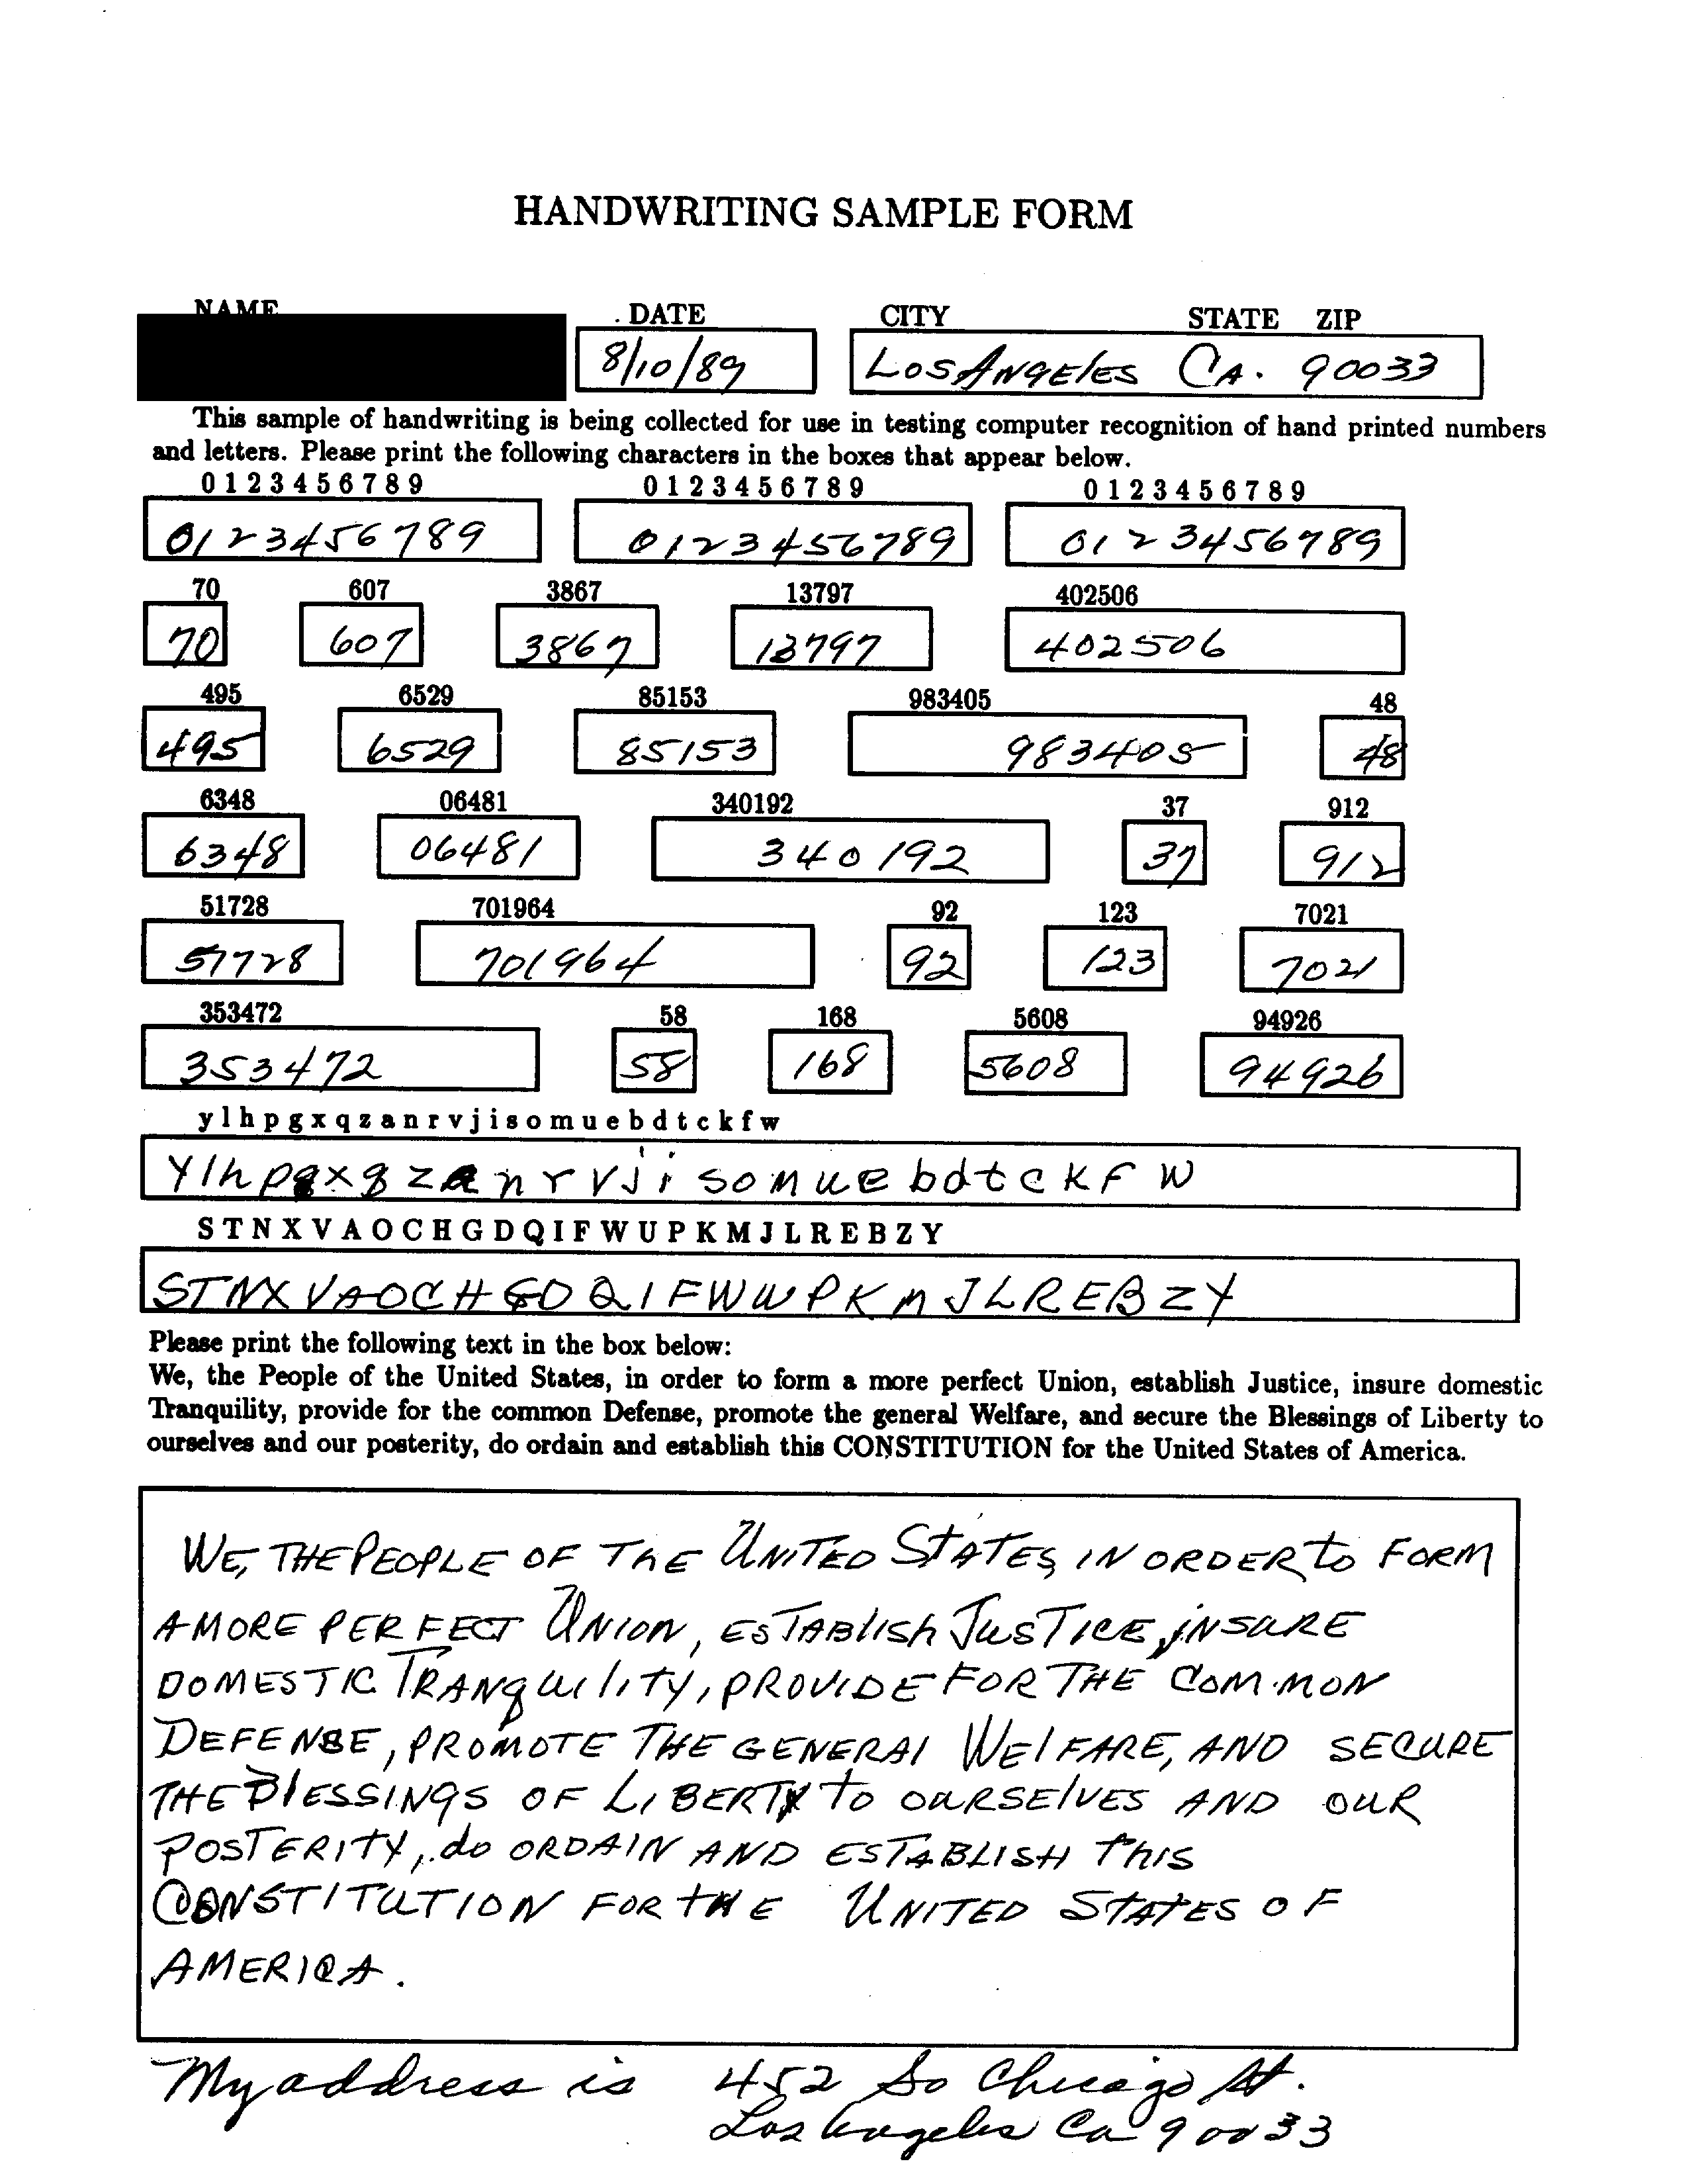 HANDWRITING SAMPLE FORM
NAME DATE CITY STATE ZIP
8/10/89 Los Angeles CA. 90033
This sample of handwriting is being collected for use in testing computer recognition of hand printed numbers
and letters. Please print the following characters in the boxes that appear below.
0 1 2 3 4 5 6 7 8 9 0 1 2 3 4 5 6 7 8 9 0 1 2 3 4 5 6 7 8 9
0123456789 0123456789 0123456789
70 607 3867 13797 402506
70 607 3867 13797 402506
495 6529 85153 983405 48
495 6529 85153 983405 48
6348 06481 340192 37 912
6348 06481 340192 37 912
51728 701964 92 123 7021
51728 701964 92 123 7021
353472 58 168 5608 94926
353472 58 168 5608 94926
y l h p g x q z a n r v j i s o m u e b d t c k f w
y l h p g x q z a n r v j i s o m u e b d t c k f w
S T N X V A O C H G D Q I F W U P K M J L R E B Z Y
S T N X V A O C H G D Q I F W U P K M J L R E B Z Y
Please print the following text in the box below:
We, the People of the United States, in order to form a more perfect Union, establish Justice, insure domestic
Tranquility, provide for the common Defense, promote the general Welfare, and secure the Blessings of Liberty to
ourselves and our posterity, do ordain and establish this CONSTITUTION for the United States of America.
WE, THE PEOPLE OF THE UNITED STATES, IN ORDER to FORM
A MORE PERFECT UNION, ESTABlISh JUSTICE, INSURE
DOMESTIC TRANqUIlITY, PROVIDE FOR THE COMMON
DEFENSE, PROMOTE THE GENERAl WElFARE, AND SECURE
THE BlESSINGS OF LIBERTY to OURSElVES AND OUR
POSTERITY, do ORDAIN AND ESTABLISH thIS
CONSTITUTION FOR tHE UNITED STATES OF
AMERICA.
My address is 452 So Chicago St.
Los Angeles Ca 90033